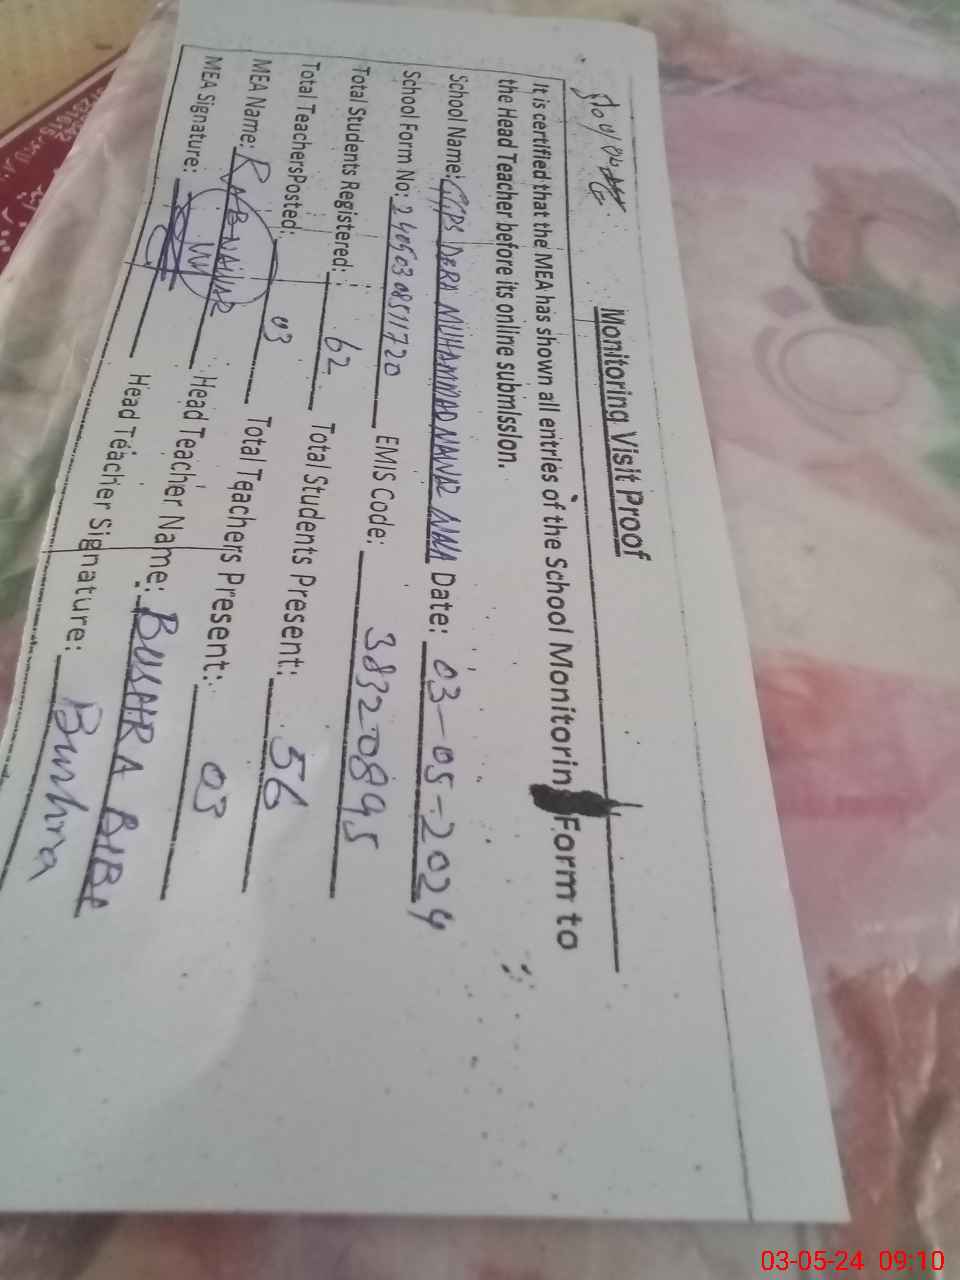 Monitoring Visit Proof
It is certified that the MEA has shown all entries of the School Monitorin Form to
the Head Teacher before its online submission.
School Name: GGPS DERA MUHAMMAD NAWAZ Date: 03-05-2024
School Form No: 24050308511720 EMIS Code: 38320895
Total Students Registered: 62 Total Students Present: 56
Total TeachersPosted: 03 Total Teachers Present: 03
MEA Name: RAB NAWAZ Head Teacher Name: BUSHRA BIBI
MEA Signature: Head Teacher Signature: Bushra
03-05-24 09:10